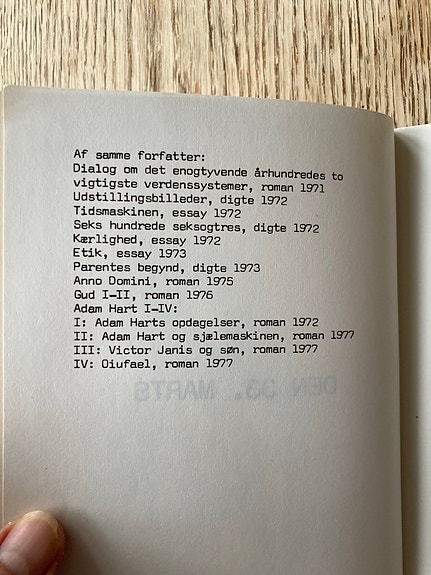 Af samme forfatter:
Dialog om det enogtyvende århundredes to
vigtigste verdenssystemer, roman 1971
Udstillingsbilleder, digte 1972
Tidsmaskinen, essay 1972
Seks hundrede seksogtres, digte 1972
Kærlighed, essay 1972
Etik, essay 1973
Parentes begynd, digte 1973
Anno Domini, roman 1975
Gud I-II, roman 1976
Adam Hart I-IV:
I: Adam Harts opdagelser, roman 1972
II: Adam Hart og sjælemaskinen, roman 1977
III: Victor Janis og søn, roman 1977
IV: Oiufael, roman 1977
DEN 33. MARTS